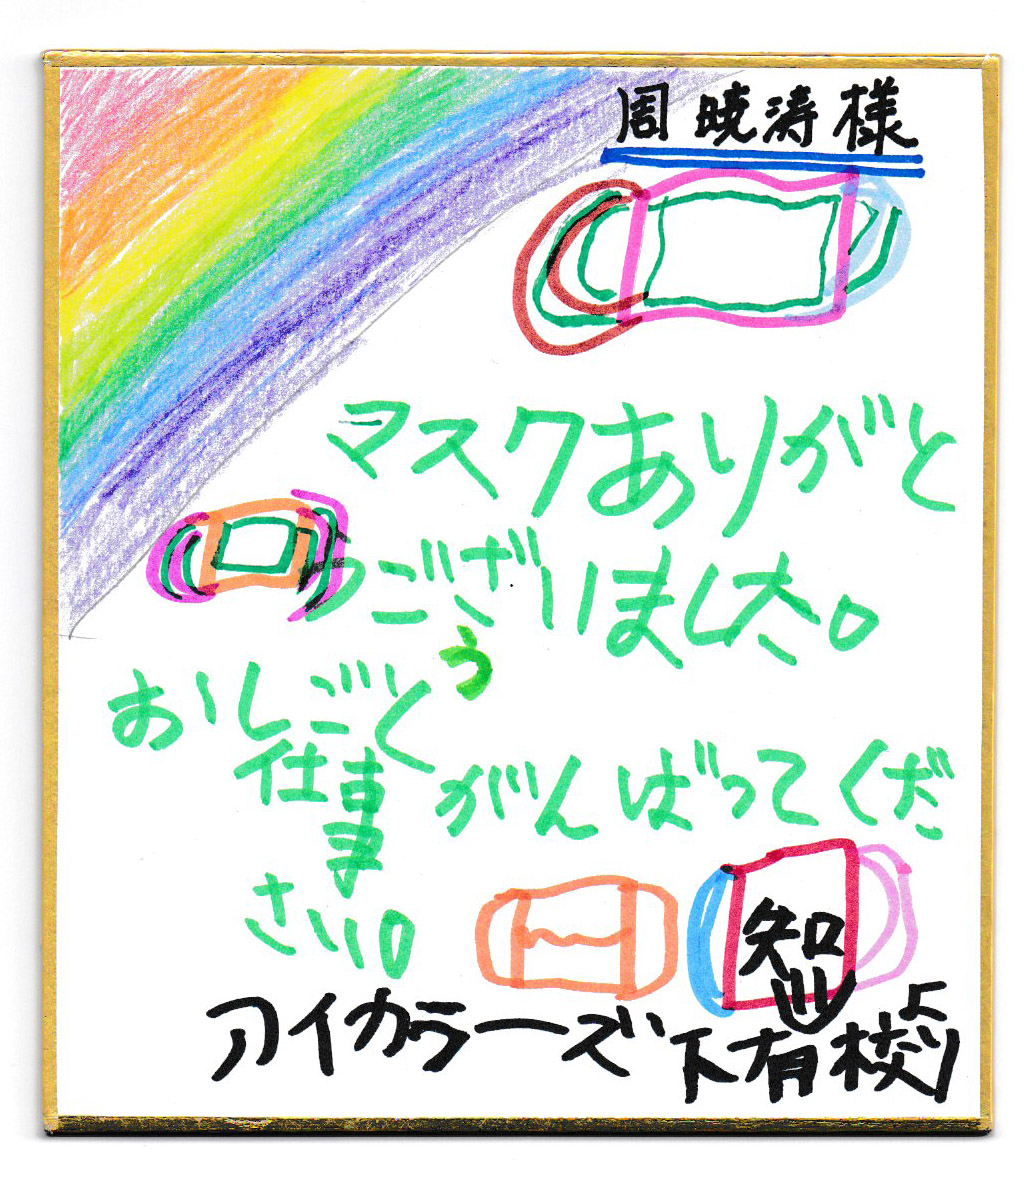 周 暁涛 様
マスクありがと
うございました。
う
おしごと
仕事がんばってくだ
さい。
知
アイカラーズ下有校より